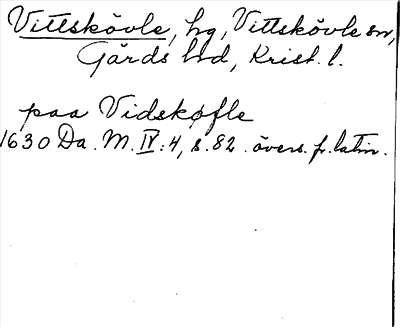 Vittskövle, hg, Vittskövle sn,
Gärds hd, Krist. l.
paa Vidskøfle
1630 Da. M. IV: 4, s. 82. övers. fr. latin.